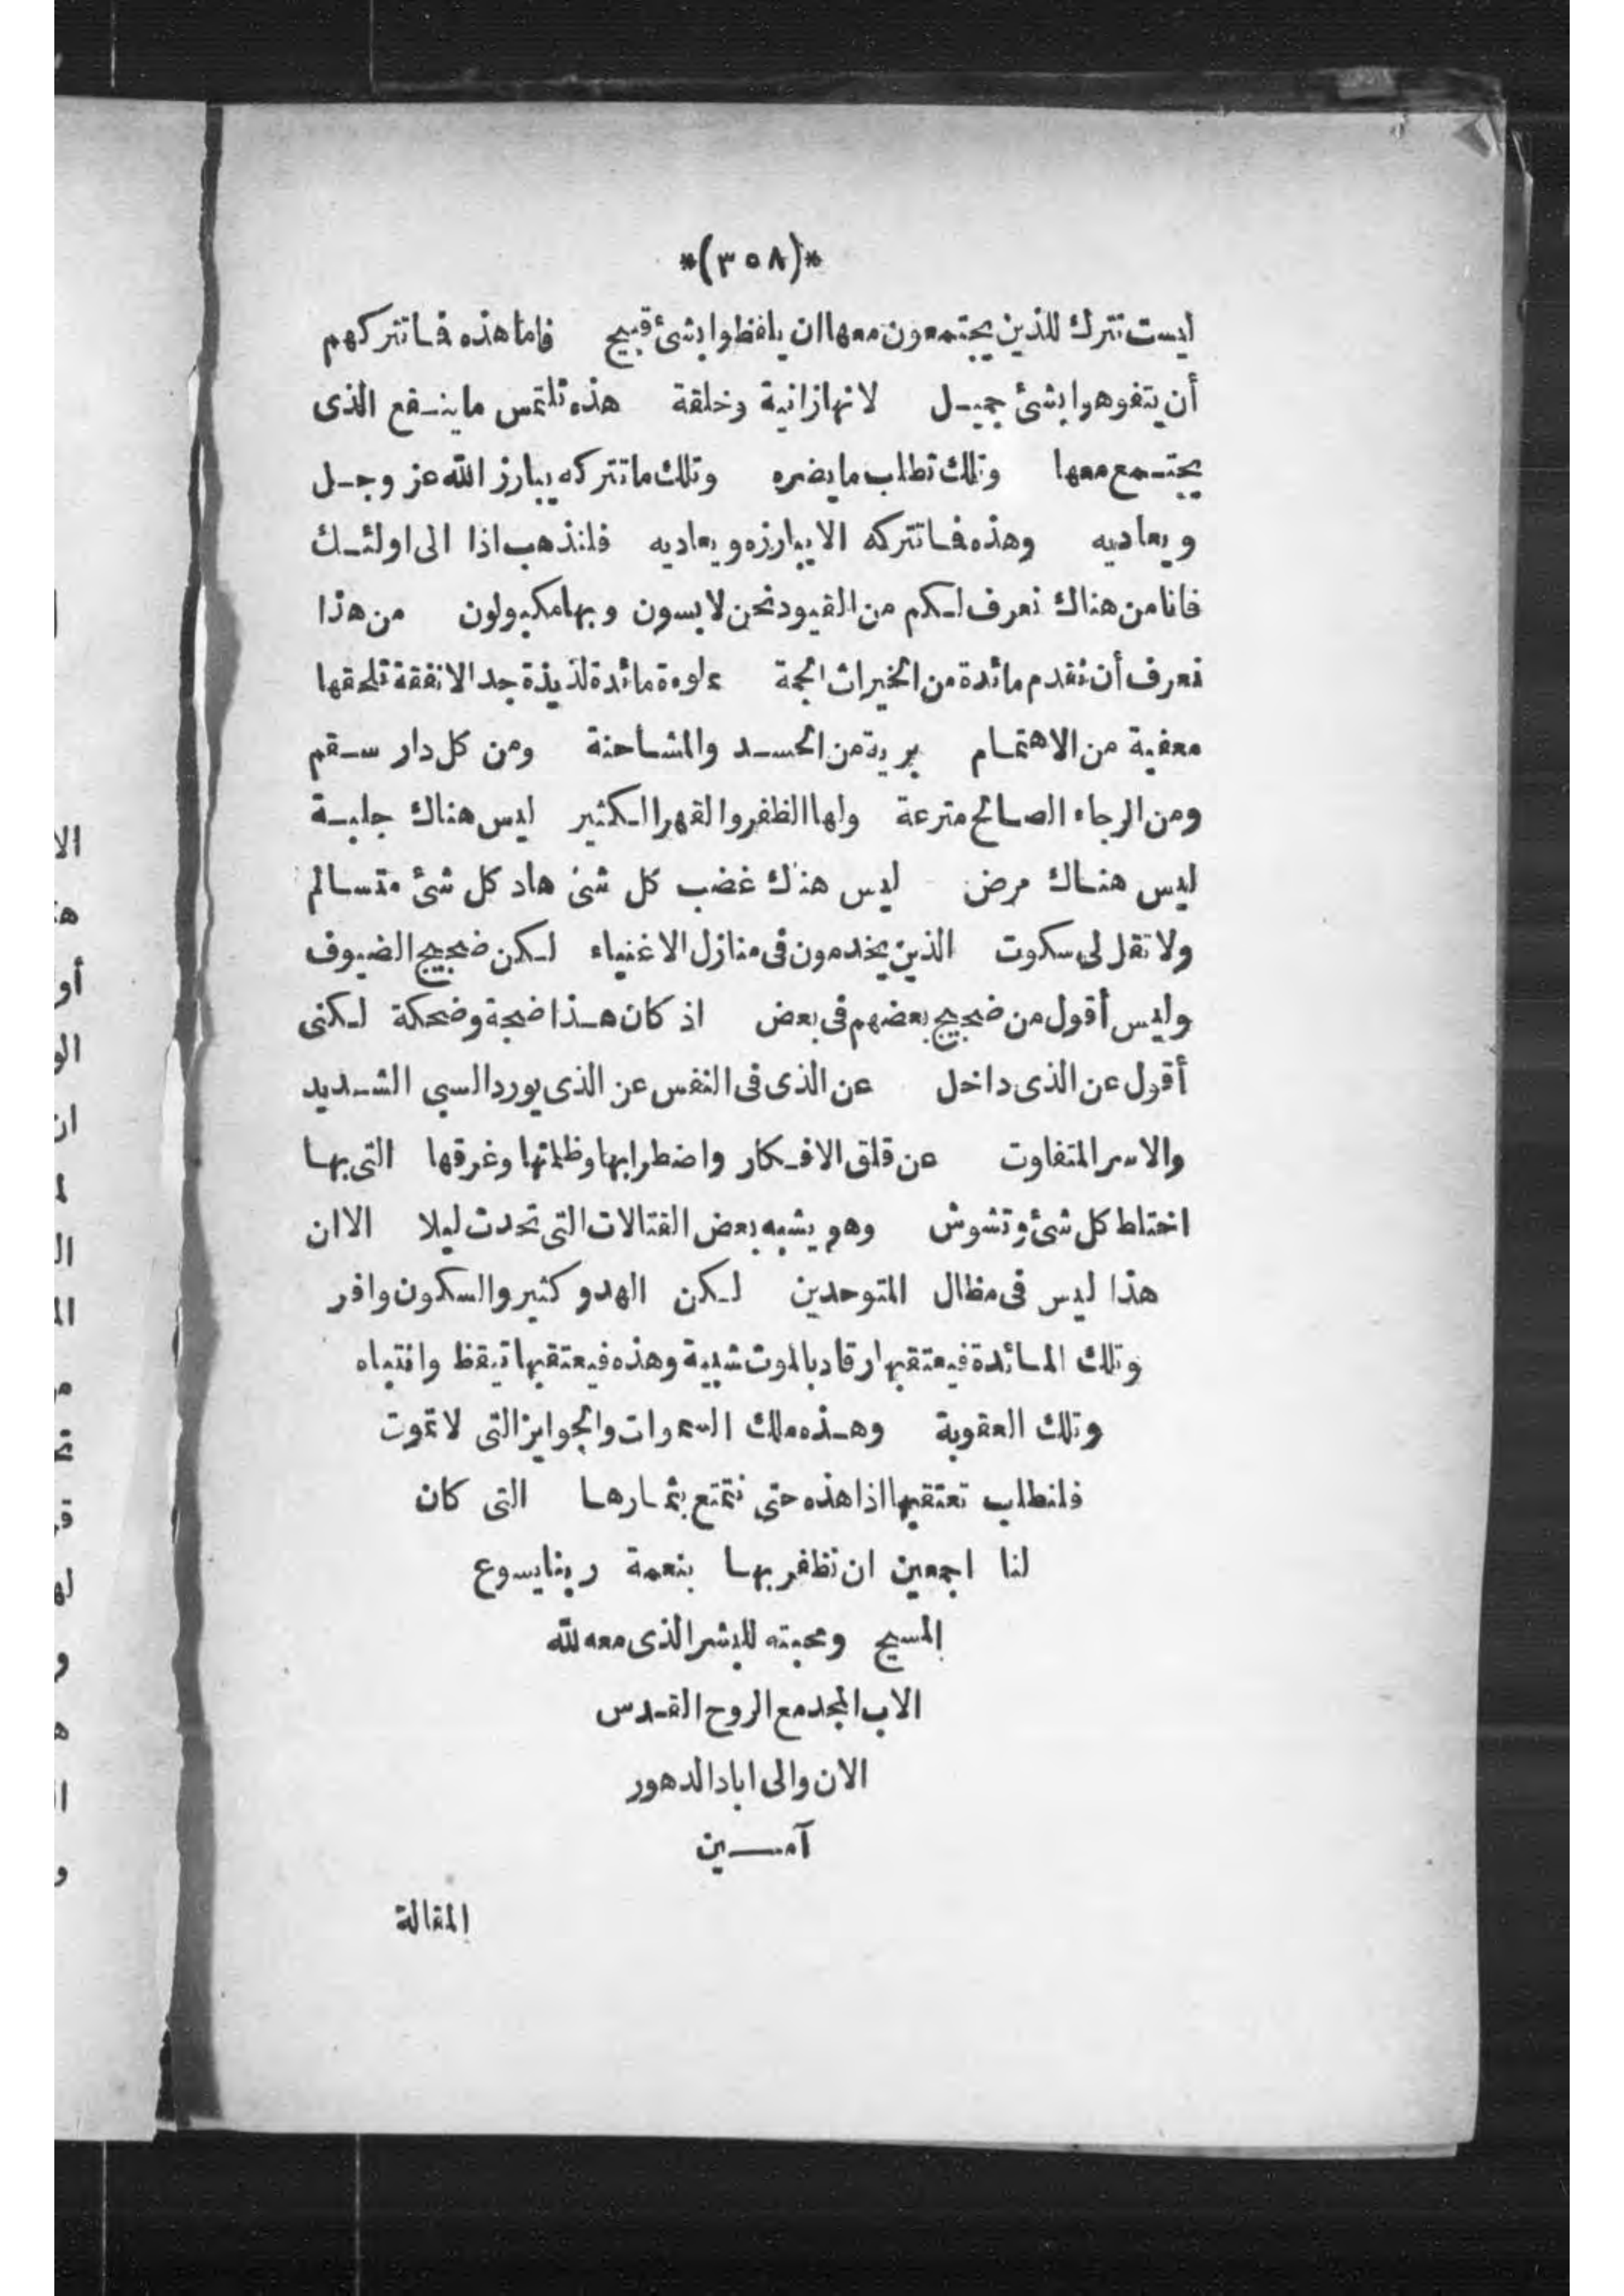 *(٣٥٨)*
ليست تترك للذين يجتمعون معها ان يلفظوا بشئ قبيح فاما هذه فما تتركهم
أن يتفوهوا بشئ جميل لانها زانية وخلقة هذه تلتمس ما ينفع الذى
يجتمع معها وتلك تطلب ما يضره وتلك ما تتركه يبارز الله عز وجل
ويعاديه وهذه فما تتركه الا يبارزه ويعاديه فلنذهب اذا الى اولئك
فانا من هناك نعرف لكم من القيود نحن لابسون وبها مكبولون من هذا
نعرف أن نقدم مائدة من الخيرات الجمة مملوءة مائدة لذيذة جدا لا نفقة تلحقها
معفية من الاهتمام برية من الحسد والمشاحنة ومن كل دار سقم
ومن الرجاء الصالح مترعة ولها الظفر والقهر الكثير ليس هناك جلبة
ليس هناك مرض ليس هناك غضب كل شئ هاد كل شئ متسالم
ولا تقل لى سكوت الذين يخدمون فى منازل الاغنياء لكن ضجيج الضيوف
وليس أقول من ضجيج بعضهم فى بعض اذ كان هذا ضجة وضحكة لكنى
أقول عن الذى داخل عن الذى فى النفس عن الذى يورد السبى الشديد
والاسر المتفاوت عن قلق الافكار واضطرابها وظلمتها وغرقها التى بها
اختلط كل شئ وتشوش وهو يشبه بعض القتالات التى تحدث ليلا الا ان
هذا ليس فى مظال المتوحدين لكن الهدو كثير والسكون وافر
وتلك المائدة فيعتقبها رقاد بالموت شبية وهذه فيعتقبها تيقظ وانتباه
وتلك العقوبة وهذه ملك السموات والجوايز التى لا تموت
فلنطلب تعتقبها اذا هذه حتى نتمتع بثمارها التى كان
لنا اجمعين ان نظفر بها بنعمة ربنا يسوع
المسيح ومحبته للبشر الذى معه لله
الاب المجد مع الروح القدس
الان والى اباد الدهور
آمين
المقالة